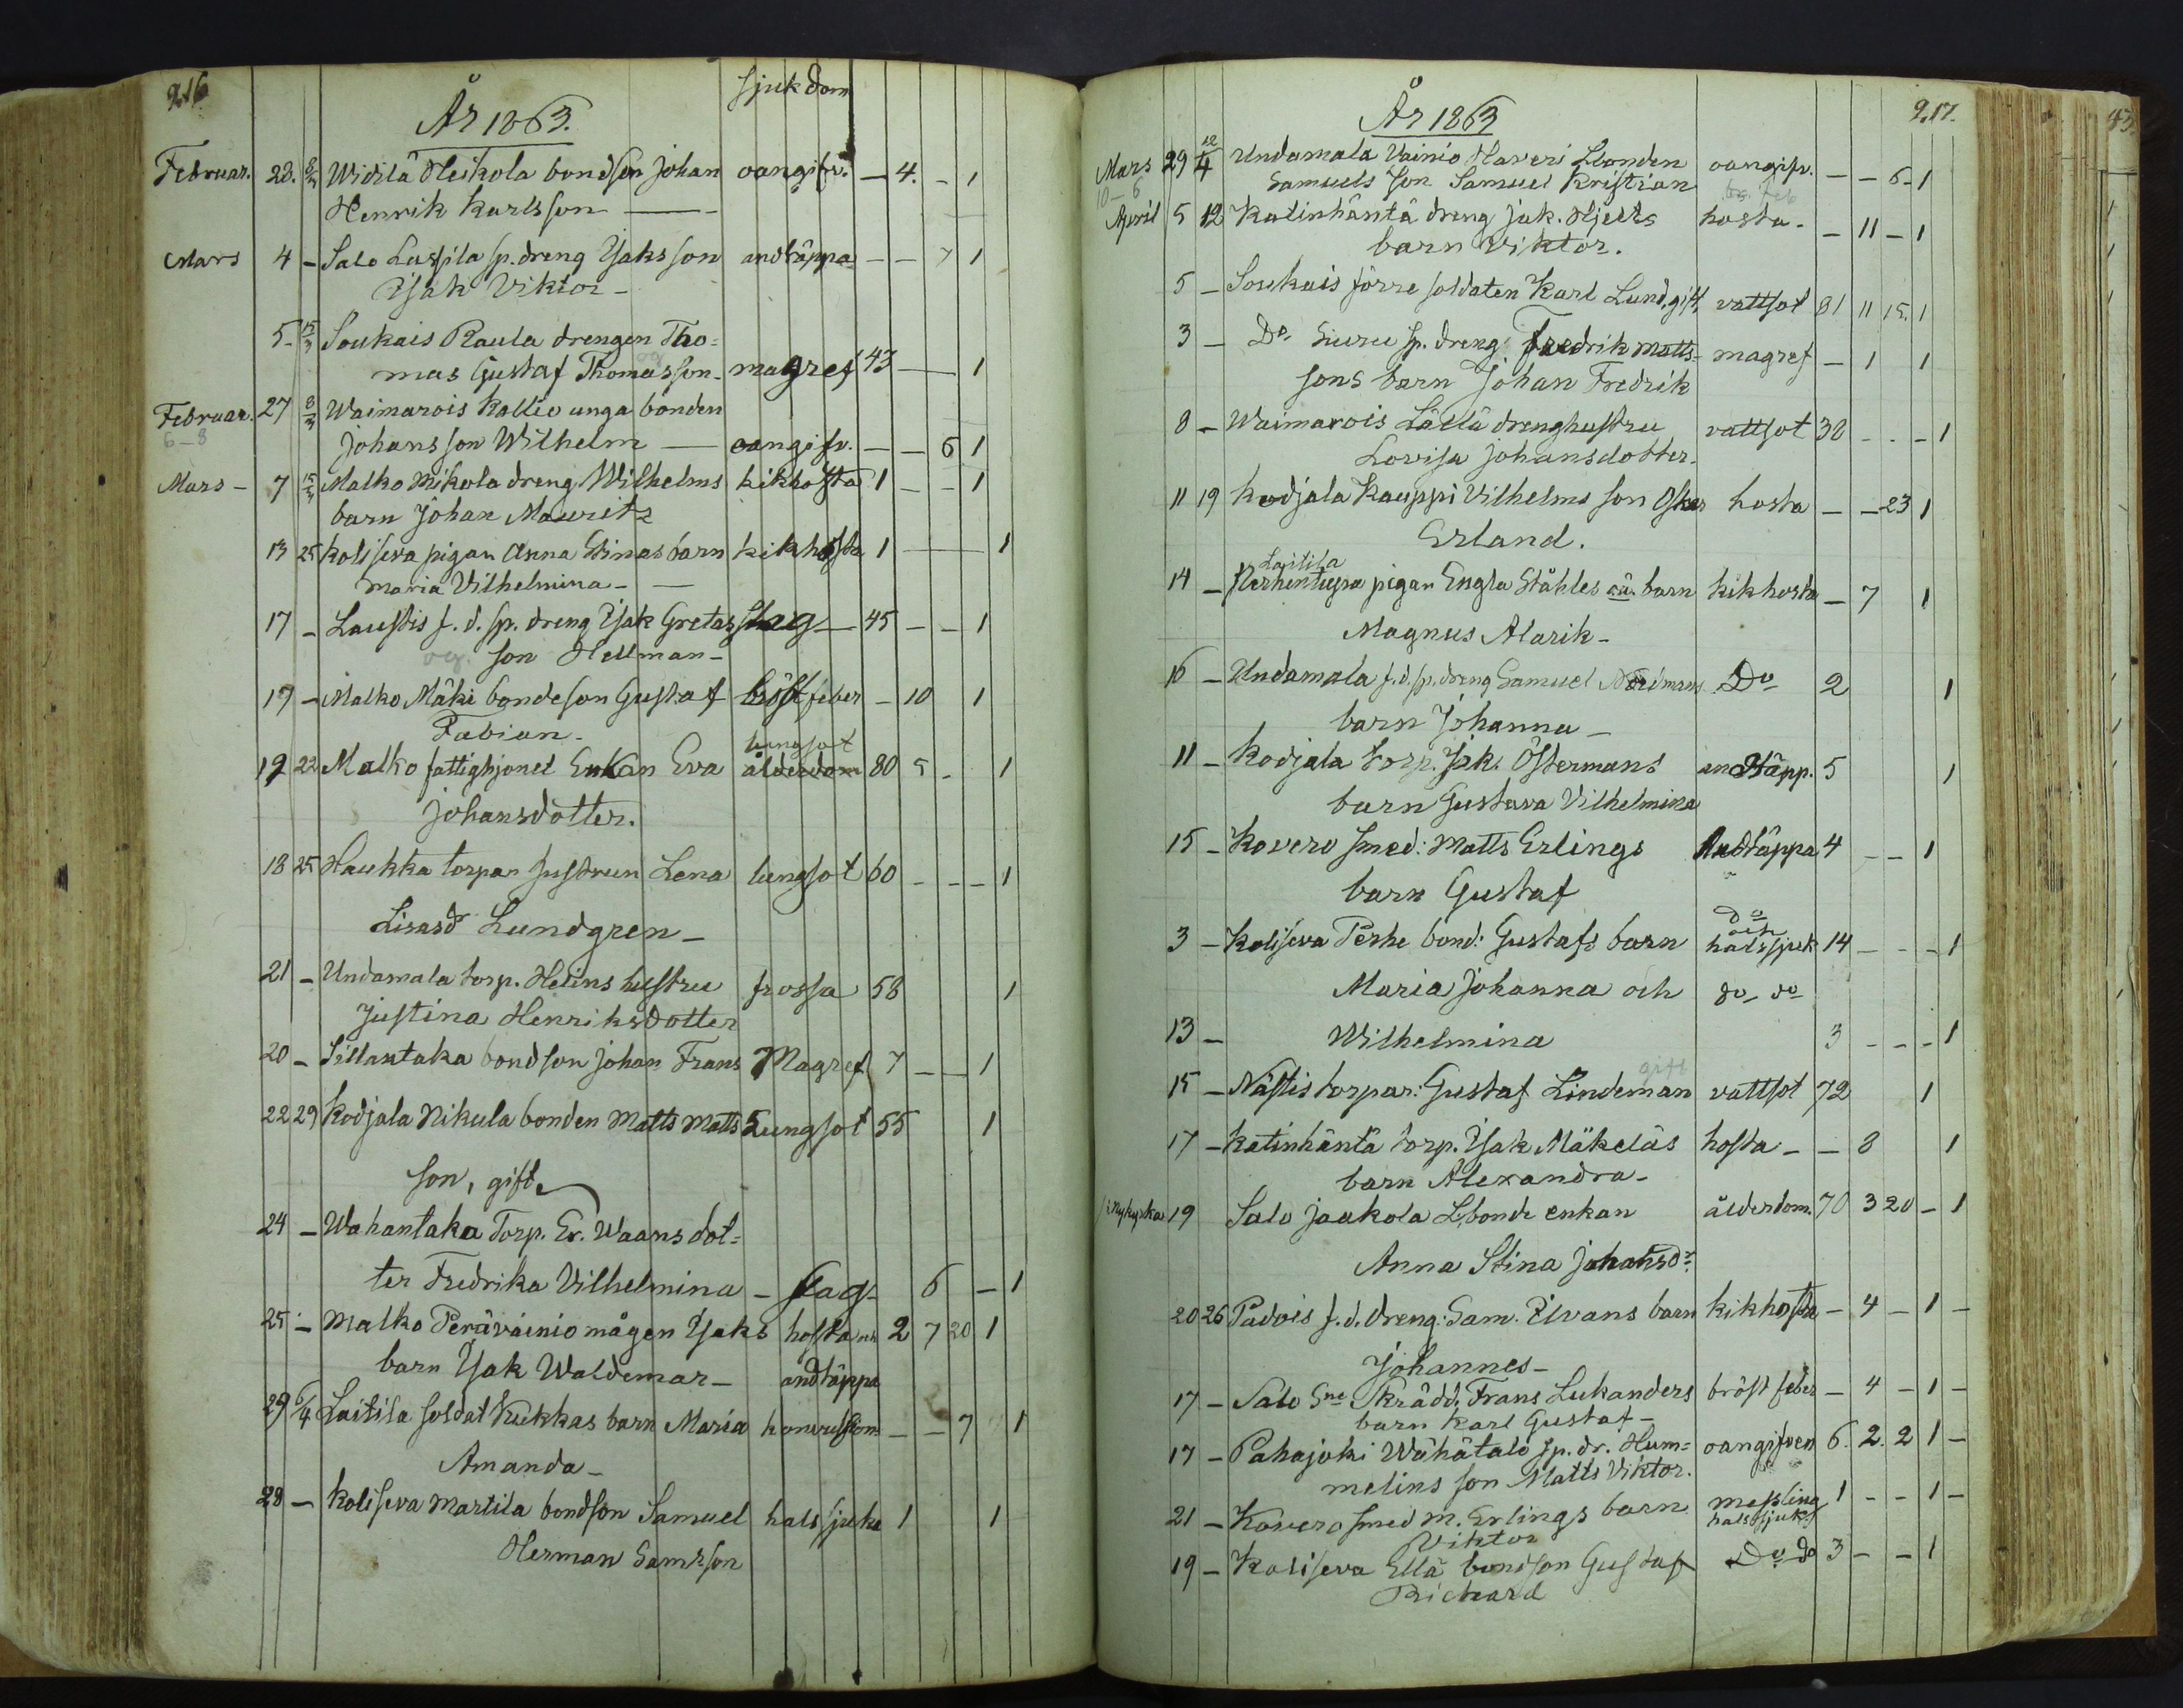 216
År 1863.
sjukdom
Februar. 28. 8/3 Widilä Heikola bondson Johan oangifv. — 4. - 1
Henrik Karlsson —
Mars 4 - Salo Lassila sp. dreng Isaks son andtäppa - - 7 1
Isak Viktor -
5. 15/3 Soukais Raula drengen Tho=
og
mas Gustaf Thomasson - magref 43 — 1
Februar. 27 8/3 Waimarois Kollio unga bonden
6-8
Johans son Wilhelm — oangifv. - - 6 1
Mars - 7 15/3 Malko Mikola dreng Wilhelms kikhosta 1 - - 1
barn Johan Mauritz
13 25 Koliseva pigan Anna Stinas barn kikhosta 1 — 1
Maria Vilhelmina -
17 - Laustis f. d. sp. dreng Isak Gretas slag — 45 - - 1
og. son Hellman -
17 - Malko Mäki bondeson Gustaf bröstfeber - 10 1
Fabian -
lungsot
19 22 Malko fattighjonet Enkan Eva ålderdom 80 5 - 1
Johansdotter.
18 25 Haukka torpar hustrun Lena lungsot 60 - - - 1
Lisasdr Lundgren -
21 - Undamala torp. Heins hustru frossa 58 1
Justina Henriksdotter
20 - Sillantaka bondson Johan Frans Magref 7 - - 1
22 29 Kodjala Nikula bonden Matts Matts Lungsot 55 1
son, gift.
24 - Wahantaka Torp. Er. Waans dot=
ter Fredrika Vilhelmina - slag - 6 - 1
25 - Malko Perävainio mågen Isaks hosta och 2 7 20 1
barn Isak Waldemar - andtäppa
29 6/4 Laitila soldat Kukkas barn Maria konvulsion - - 7 1
Amanda -
28 - Koliseva Martila bondson Samuel halssjuka 1 1
Herman Samsson
217.
År 1863
Mars 29 12/4 Undamala Vainio Haveri Lbonden oangifv. - - 6 - 1
10-6 Samuels son Samuel Kristian
April 5 12 Katinhäntä dreng Jak. Hjelts hosta - - 11 - 1
barn Viktor.
5 - Soukais förre soldaten Karl Lund, gift, vattsot 81 11 15. 1
3 - Do Siuru sp. dreng Fredrik Matts- magref - 1 1
sons barn Johan Fredrik
8 - Waimarois Lällä drenghustru vattsot 32 - . - 1
Lovisa Johansdotter.
11 19 Kodjala Kauppi Vilhelms son Oskar hosta - - 23 1
Erland.
Laitila
14 - Perhentupa pigan Engla Ståhles oä. barn kikhosta - 7 1
Magnus Alarik -
16 - Undamala f.d. sp. dreng Samuel Nordmans Do 2 1
barn Johanna -
11 - Kodjala torp. Isak Östermans andtäpp. 5 1
barn Gustava Vilhelmina
15 - Kovero smed: Matts Erlings Andtäppa 4 - - 1
barn Gustaf
do
och
3 - Koliseva Perhe bond: Gustafs barn halssjuk 14 - - - 1
Maria Johanna och do - do
13 - Wilhelmina 3 - - - 1
gift
15 - Nästis torpar: Gustaf Lindeman vattsot 72 1
17 - Katinhäntä torp. Isak Mäkeläs hosta - - 8 1
barn Alexandra -
19 Salo Jaakola Lbonde enkan ålderdom. 70 3 20 - 1
Anna Stina Johansdr.
20 26 Padois f. d. dreng: Sam. Elvans barn kikhosta - 4 - 1 -
Johannes -
17 - Salo Sne Skrädd. Frans Lukanders bröstfeber - 4 - 1 -
barn Karl Gustaf -
17 - Pahajoki Wähätalo sp. dr. Hum= oangifven 6. 2. 2 1 -
melins son Matts Viktor.
21 - Kovero smed M. Erlings barn messling 1 - - 1 -
Viktor halssjuk.
19 - Koliseva Ellä bondson Gustaf Do do 3 - - 1
Richard
43.